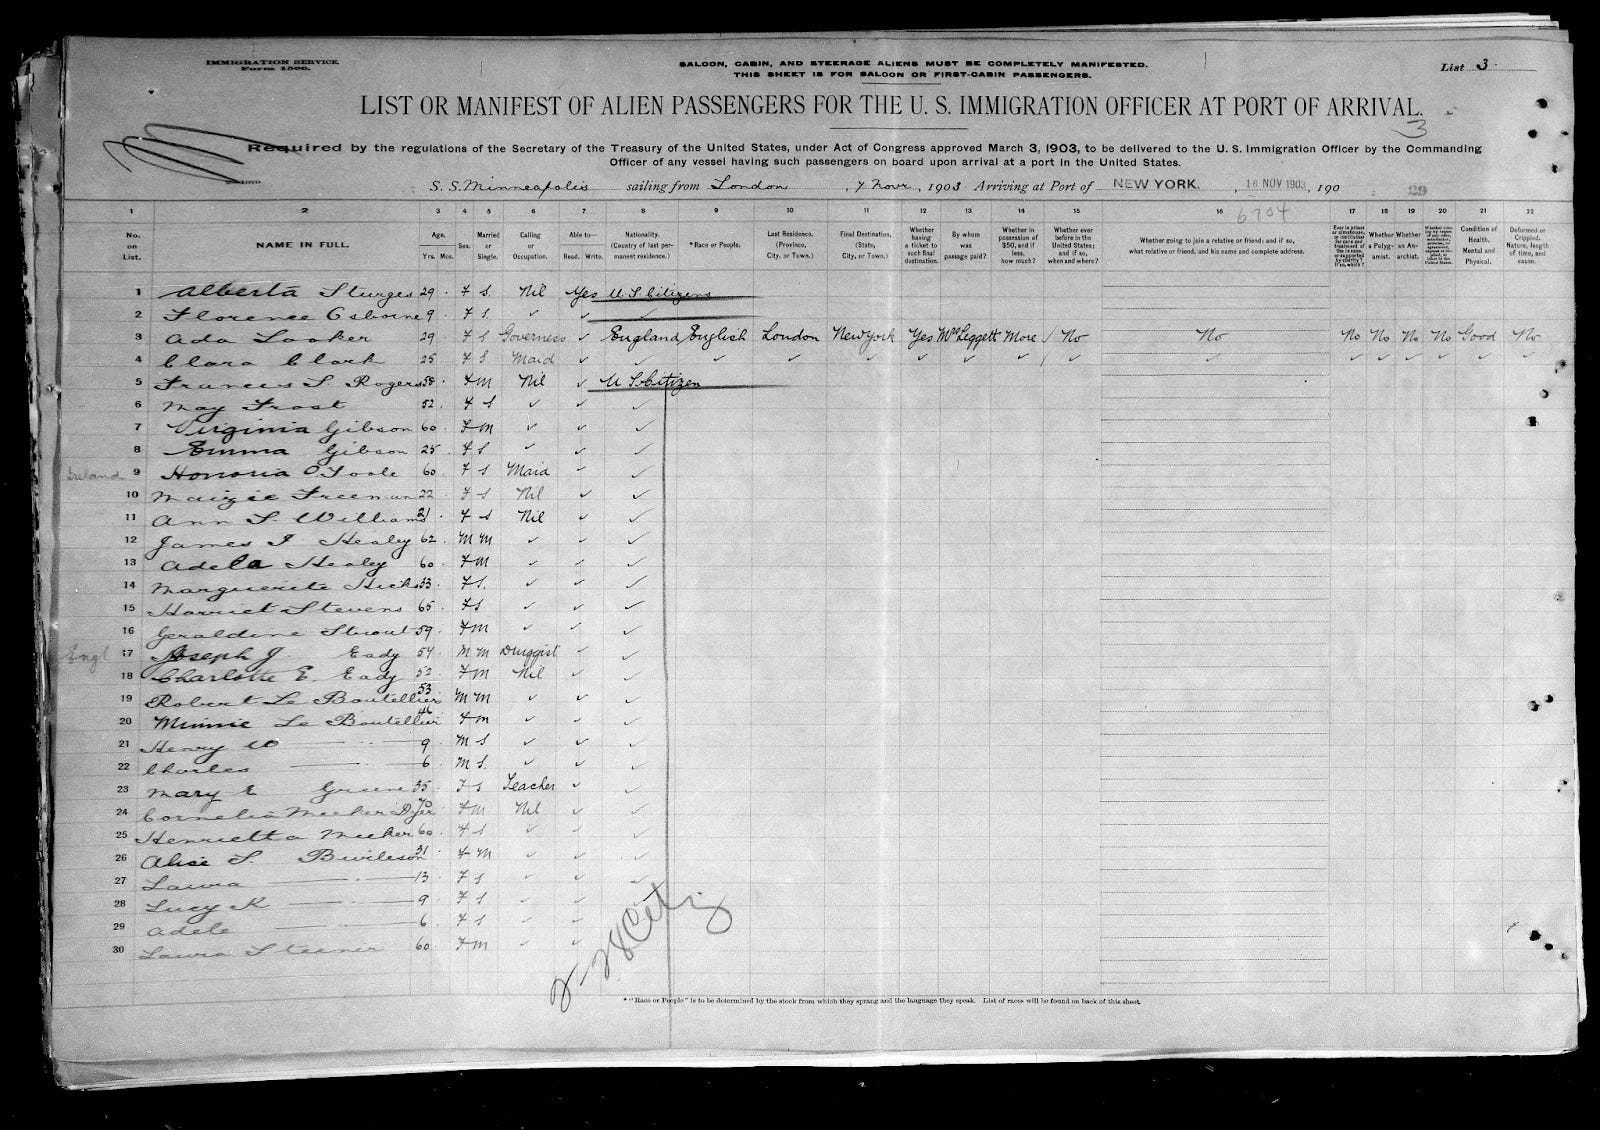 IMMIGRATION SERVICE.
Form 1500.
SALOON, CABIN, AND STEERAGE ALIENS MUST BE COMPLETELY MANIFESTED.
THIS SHEET IS FOR SALOON OR FIRST-CABIN PASSENGERS.
List 3.
LIST OR MANIFEST OF ALIEN PASSENGERS FOR THE U. S. IMMIGRATION OFFICER AT PORT OF ARRIVAL.
3
Required by the regulations of the Secretary of the Treasury of the United States, under Act of Congress approved March 3, 1903, to be delivered to the U. S. Immigration Officer by the Commanding
Officer of any vessel having such passengers on board upon arrival at a port in the United States.
S. S. Minneapolis sailing from London, 7 Novr, 1903 Arriving at Port of NEW YORK. , 16 NOV 1903, 190
29
1 2 3 4 5 6 7 8 9 10 11 12 13 14 15 16 17 18 19 20 21 22
6704
No. on List. NAME IN FULL. Age. Yrs. Mos. Sex. Married or Single. Calling or Occupation. Able to— Read. Write. Nationality. (Country of last permanent residence.) *Race or People. Last Residence. (Province, City, or Town.) Final Destination. (State, City, or Town.) Whether having a ticket to such final destination. By whom was passage paid? Whether in possession of $50, and if less, how much? Whether ever before in the United States; and if so, when and where? Whether going to join a relative or friend; and if so, what relative or friend, and his name and complete address. Whether a Polygamist. Whether an Anarchist. Condition of Health, Mental and Physical. Deformed or Crippled. Nature, length of time, and cause.
1 Alberta Sturges 29 F S. Nil Yes U S Citizens
2 Florence Osborne 9 F S. ✓ ✓ ✓
3 Ada Looker 29 F S Governess ✓ England English London New York Yes Mrs Leggett More No No No No No No Good No
4 Clara Clark 25 F S Maid ✓ ✓ ✓ ✓ ✓ ✓ ✓ ✓ ✓ ✓ ✓ ✓ ✓ ✓ ✓ ✓
5 Frances S Rogers 58 F M Nil ✓ U S Citizen
6 May Frost 52 F S ✓ ✓ ✓
7 Virginia Gibson 60 F M ✓ ✓ ✓
8 Emma Gibson 25 F S ✓ ✓ ✓
Ireland 9 Honoria O'Toole 60 F S Maid ✓ ✓
10 Maizie Freeman 22 F S Nil ✓ ✓
11 Ann S Williams 21 F S Nil ✓ ✓
12 James J Healey 62 M M ✓ ✓ ✓
13 Adela Healey 60 F M ✓ ✓ ✓
14 Marguerite Hicks 33 F S. ✓ ✓ ✓
15 Harriet Stevens 65 F S ✓ ✓ ✓
16 Geraldine Strout 59 F M ✓ ✓ ✓
Engl 17 Joseph J Eady 54 M M Druggist ✓ ✓
18 Charlotte E. Eady 52 F M Nil ✓ ✓
19 Robert Le Boutellier 53 M M ✓ ✓ ✓
20 Minnie Le Boutellier 46 F M ✓ ✓ ✓
21 Henry W 9 M S ✓ ✓ ✓
22 Charles 6 M S. ✓ ✓ ✓
23 Mary E Greene 35 F S Teacher ✓ ✓
24 Cornelia Meeker Dyer 70 F M Nil ✓ ✓
25 Henrietta Meeker 60 F S ✓ ✓ ✓
26 Alise S. 31 F M ✓ ✓ ✓
27 Laura 13 F S ✓ ✓ ✓
28 Lucy K 9 F S ✓ ✓ ✓
29 Adele 6 F S ✓ ✓
30 Laura Steiner 60 F M ✓ ✓
* "Race or People" is to be determined by the stock from which they sprang and the language they speak. List of races will be found on back of this sheet.